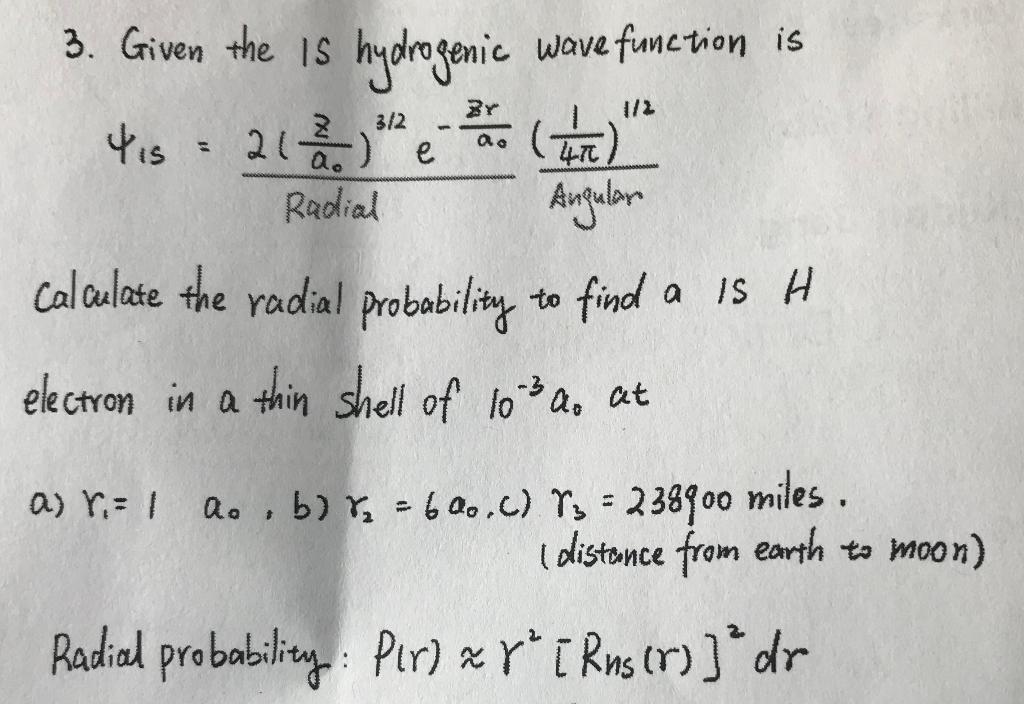 3. Given the 1S hydrogenic wavefunction is
Ψ1s = 2(Z/a₀)^3/2 e^-Zr/a₀ (1/4π)^1/2
Radial Angular
Calculate the radial probability to find a 1S H
electron in a thin shell of 10⁻³ a₀ at
a) r₁ = 1 a₀, b) r₂ = 6 a₀, c) r₃ = 238900 miles.
(distance from earth to moon)
Radial probability: P(r) ≈ r² [Rns(r)]² dr